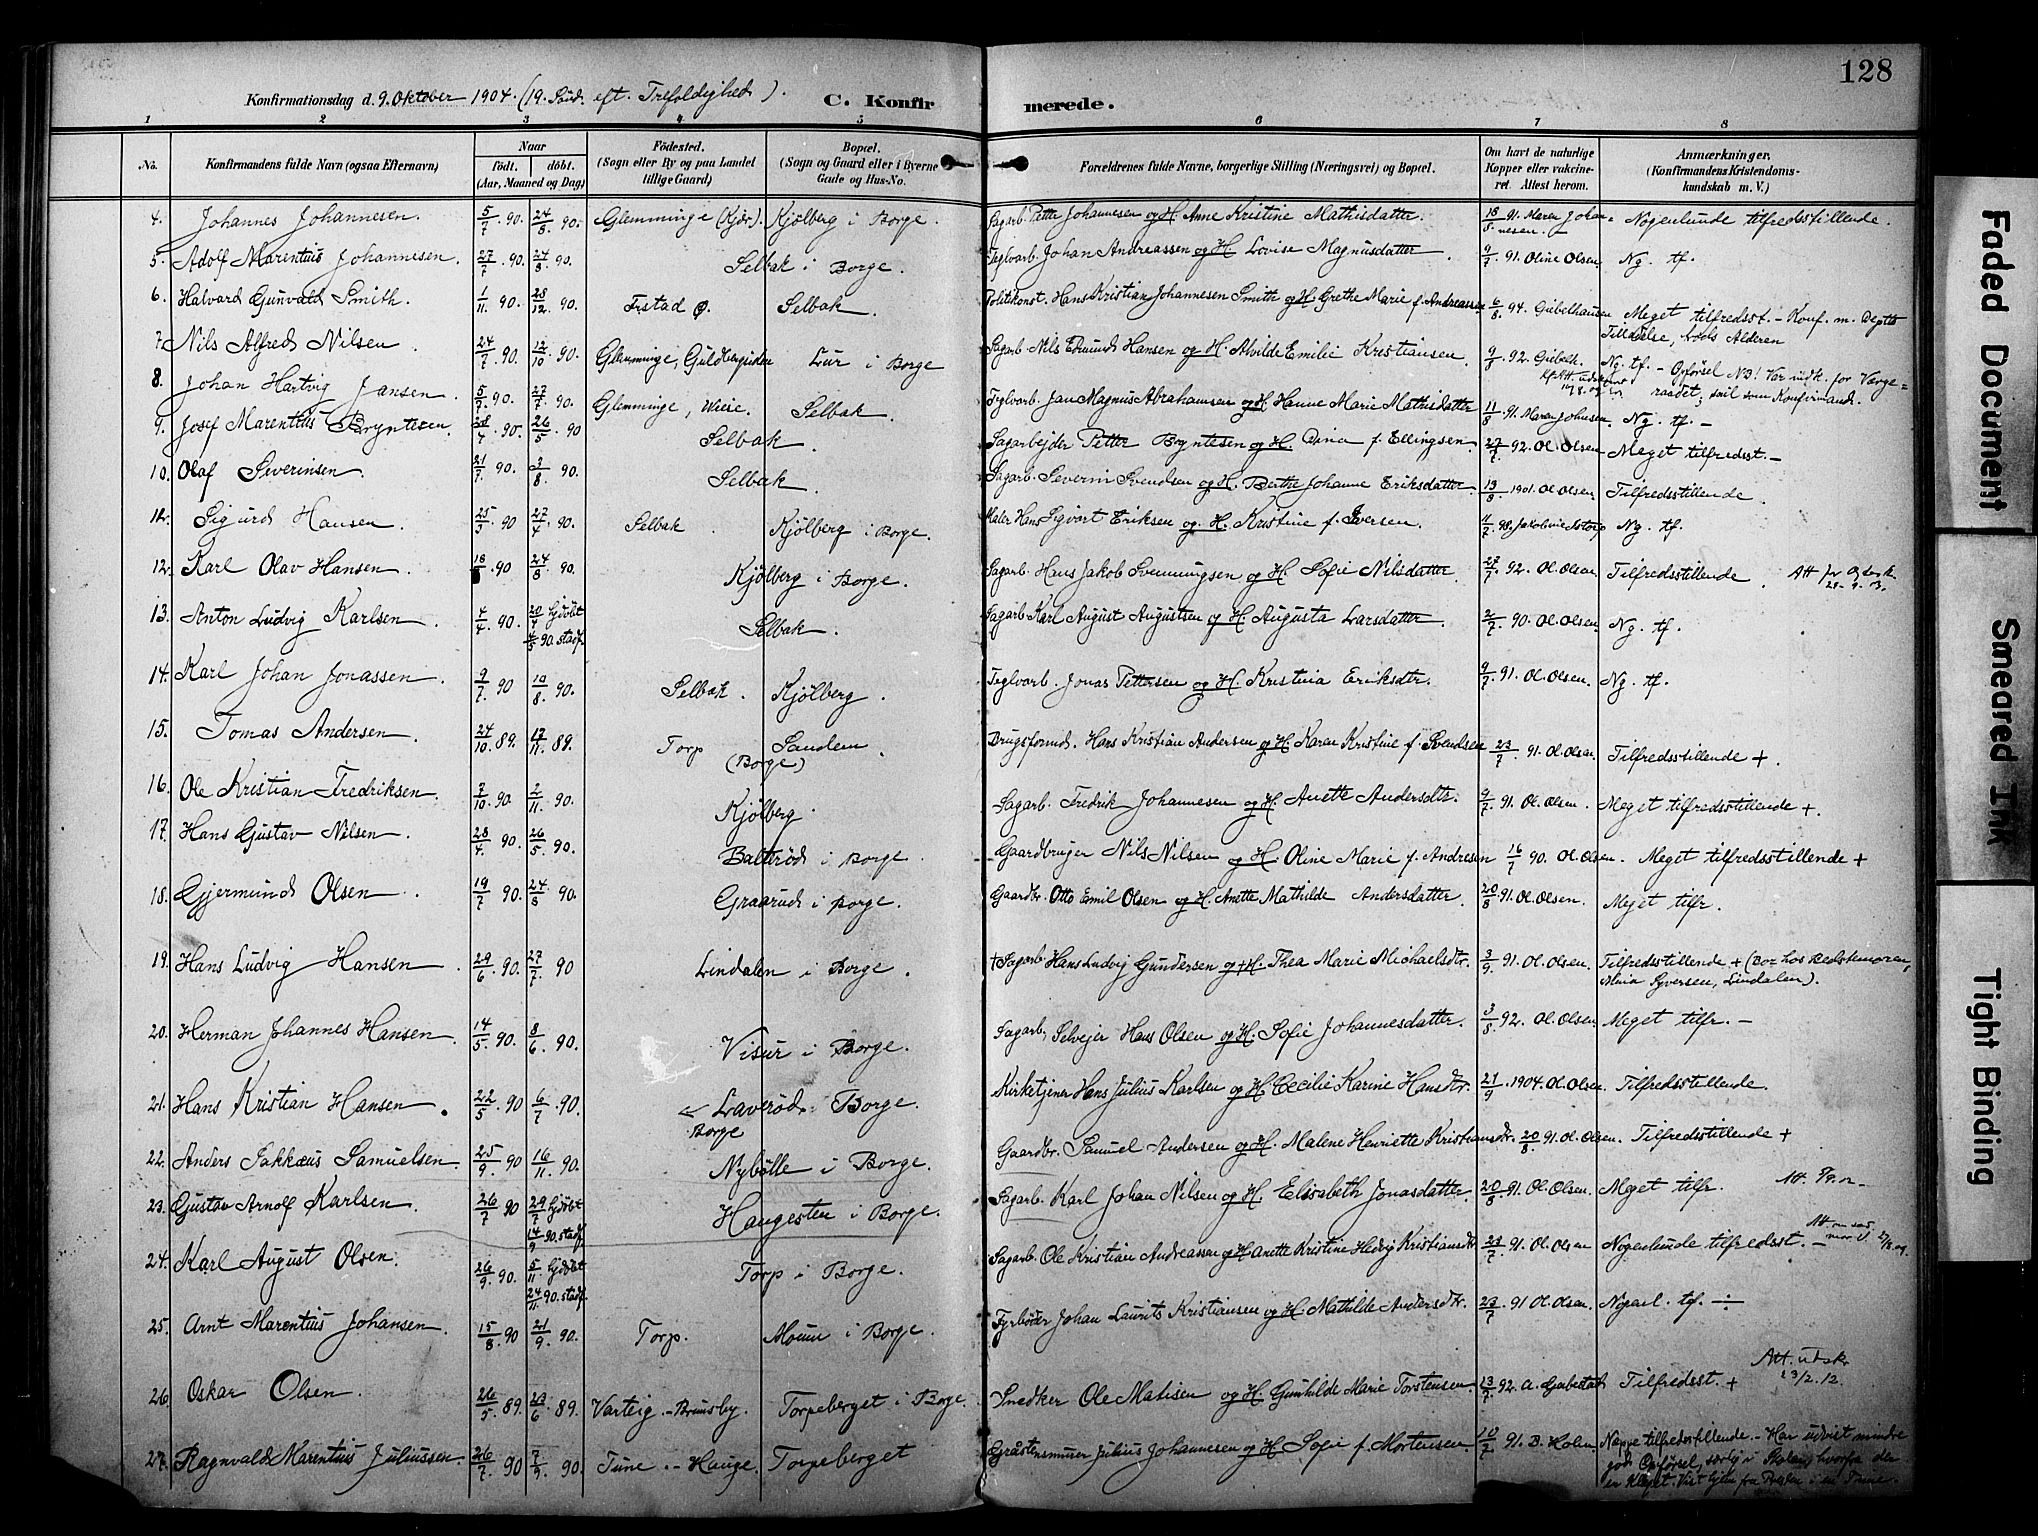 128
Konfirmationsdag d. 9. Oktober 1904. (19. Sønd. eft. Trefoldighed).
C. Konfirmerede.
1 2 3 4 5 6 7 8
No. Konfirmandens fulde Navn (ogsaa Efternavn) Naar født. døbt. (Aar, Maaned og Dag) Fødested. (Sogn eller By og paa Landet tillige Gaard) Bopæl. (Sogn og Gaard eller i Byerne Gade og Hus-No. Forældrenes fulde Navne, borgerlige Stilling (Næringsvei) og Bopæl. Om havt de naturlige Kopper eller vakcineret. Attest herom. Anmærkninger. (Konfirmandens Kristendomskundskab m. V.)
4. Johannes Johannesen. 5/7 90. 24/8 90. Glemminge (Kjør). Kjølberg i Borge. Sagarb. Petter Johannesen og H. Anne Kristine Mathisdatter. 18/8 91. Maren Johannesen. Nogenlunde tilfredsstillende.
5. Adolf Marentius Johannesen. 27/7 90. 24/8 90. Selbak i Borge. Teglvarb. Johan Andreassen og H. Lovise Magnusdatter. 9/7 91. Oline Olsen. Ng. tf.
6. Halvard Gunvald Smith. 1/11 90. 28/12 90. Frstad Selbak. Politikonst. Hans Kristian Johannesen Smith og H. Grethe Marie f. Andreassen 6/8 94. Gubelhausen Meget tilfredsst. - Konf. m. Depts Tilladelse, Alderen
7. Nils Alfred Nilsen. 24/7 90. 12/10 90. Glemminge, Guldbergsiden Lur i Borge Sagarb. Nils Edmund Hansen og H. Alvilde Emilie Kristiansen. 9/7 92. Gubelh. Ng. tf. - Opførsel NB! Var indk. for Værgeraadet, som Konfirmand.
8. Johan Hartvig Jansen. 5/7 90. 27/7 90. Glemminge, Weie. Selbak. Teglvarb. Jan Magnus Abrahamsen og H. Hanne Marie Mathisdatter 11/8 91. Maren Johnsen. Ng. tf. -
9. Josef Marentius Bryntesen. 28/4 90. 26/5 90 Selbak. Sagarbejder Petter Bryntesen og H. Dina f. Ellingsen. 27/7 92. Ol. Olsen Meget tilfredsst. -
10. Olaf Severinsen. 21/7 90. 3/8 90. Selbak. Sagarb. Severin Svendsen og H. Berthe Johanne Eriksdatter. 13/8 1901. Ol. Olsen Tilfredsstillende.
12. Sigurd Hansen. 25/3 90 27/4 90. Selbak. Kjølberg i Borge. Maler Hans Sigvart Eriksen og H. Kristine f. Iversen. Ng. tf.
12. Karl Olav Hansen. 18 90 24/8 90. Kjølberg i Borge. Sagarb. Hans Jakob Svenningsen og H. Sofie Nilsdatter. 27/7 92. Ol. Olsen. Tilfredsstillende.
13. Anton Ludvig Karlsen. 4/4 90. 20/4 hjdøbt 4/5 90. stadf. Selbak. Sagarb. Karl August Augustsen og H. Augusta Larsdatter. 2/7 90. Ol. Olsen. Ng. tf.
14. Karl Johan Jonassen. 9/7 90 10/8 90. Selbak. Kjølberg. Teglvarb. Jonas Pettersen og H. Kristina Eriksdtr. 9/7 91. Ol. Olsen. Ng. tf.
15. Tomas Andersen. 24/10 89. 17/11 89. Torp (Borge) Sandem. Brugsformd. Hans Kristian Andersen og H. Karen Kristine f. Svendsen 23/7 91. Ol. Olsen. Tilfredsstillende +.
16. Ole Kristian Fredriksen. 7/10 90. 2/11 90. Kjølberg. Sagarb. Fredrik Johannesen og H. Anette Andersdtr. 9/7 91. Ol. Olsen. Meget tilfredsstillende +.
17. Hans Gustav Nilsen. 28/4 90. 26/5 90. Balterød i Borge. Gaardbruger Nils Nilsen og H. Oline Marie f. Andresen 16/7 90. Ol. Olsen. Meget tilfredsstillende +
18. Gjermund Olsen. 19/7 90. 24/8 90. Graarud i Borge. Gaardbr. Otto Emil Olsen og H. Anette Mathilde Andersdatter. 20/8 91. Ol. Olsen. Meget tilfr.
19. Hans Ludvig Hansen. 29/6 90. 27/7 90 Lindalen i Borge. † Sagarb. Hans Ludvig Gundersen og † H. Thea Marie Michaelsdtr. 3/9 91. Ol. Olsen. Tilfredsstillende + (Bor hos Bedstemoren, Maria Syversen, Lindalen).
20. Herman Johannes Hansen. 14/5 90. 8/6 90. Visur i Borge. Sagarb., Selvejer Hans Olsen og H. Sofie Johannesdatter. 3/8 92. Ol. Olsen. Meget tilfr. -
21. Hans Kristian Hansen. 22/5 90 6/7 90. Laverød Borge. Borge Kirketjener Hans Julius Karlsen og H. Cecilie Karine Hansdtr. 21/9 1904. Ol. Olsen. Tilfredsstillende.
22. Anders Sakkæus Samuelsen. 25/9 90 16/11 90. Nybølle i Borge. Gaardbr. Samuel Andersen og H. Malene Henriette Kristiansdtr. 20/8 91. Ol. Olsen. Tilfredsstillende +
23. Gustav Arnolf Karlsen. 26/7 90 29/7 hjdøbt 14/9 90. stadf. Haugesten i Borge. Sagarb. Karl Johan Nilsen og H. Elisabeth Jonasdatter. 20/8 91. Ol. Olsen. Meget tilfr.
24. Karl August Olsen. 26/9 90. 5/11 hjdøbt 24/11 90. stadf. Torp i Borge. Sagarb. Ole Kristian Andreassen og H. Anette Kristine Hedvig Kristiansdtr. 23/7 91. Ol. Olsen Nogenlunde tilfredsst. -
25. Arnt Marentius Johansen. 15/8 90 21/9 90. Torp. Moum i Borge. Fyrbøder Johan Laurits Kristiansen og H. Mathilde Andersdtr. 23/7 91 Ol. Olsen. tf. ÷
26. Oskar Olsen. 26/5 89. 23/6 89. Varteig - Brunsby. Torpeberget i Borge. Snedker Ole Matisen og H. Gunhilde Marie Torstensen. 13/7 92. Tilfredsst. + Att. udskr 23/2. 12.
27. Ragnvald Marentius Juliussen. 26/7 90 7/9 90. Tune - Hauge. Torpeberget Graastensmurer Julius Johannesen og H. Sofie f. Mortensen. 10/7 91. B. Holm. Neppe tilfredsstillende. - Har udvist mindre god Opførsel, særlig i Skolen, hvorfra der er klaget.
Faded Document
Smeared Ink
Tight Binding